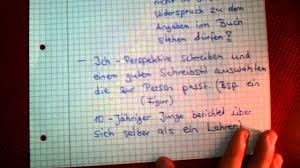 Widerspruch zu dem
Angaben im Buch
stehen dürfen!
- Ich - Perspektive schreiben und
einem guten Schreibstil auswählen
die zur Person passt. (Bsp. ein
10-Jähriger Junge berichtet über
sich selber als ein Lehrer)